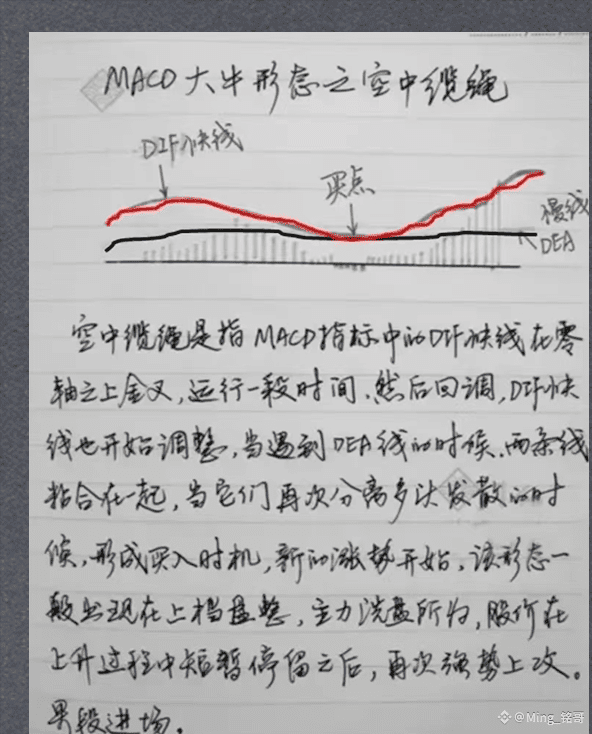 MACD大牛形态之空中缆绳
DIF快线
买点
慢线
DEA
空中缆绳是指MACD指标中的DIF快线在零
轴之上金叉,运行一段时间,然后回调,DIF快
线也开始调整,当遇到DEA线的时候,两条线
粘合在一起,当它们再次分离多头发散的时
候,形成买入时机,新的涨势开始,该形态一
般出现在上档盘整,主力洗盘所为,股价在
上升过程中短暂停留之后,再次强势上攻。
果段进场。
@Ming_铭哥